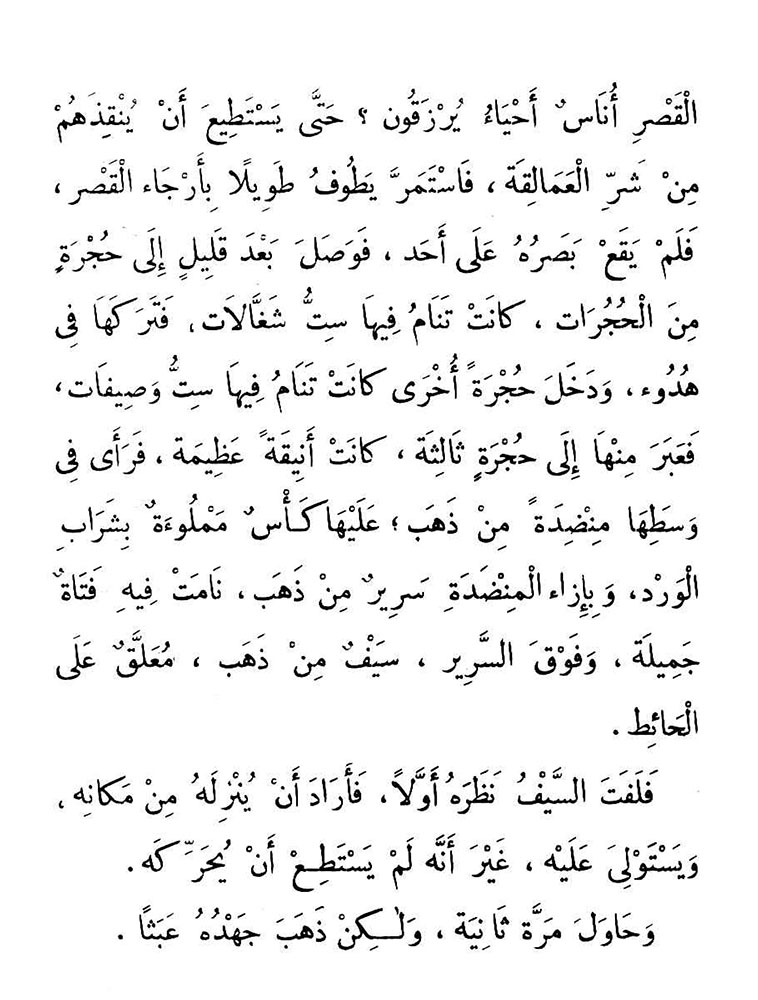 الْقَصْرِ أُنَاسٌ أَحْيَاءُ يُرْزَقُون ؟ حَتَّى يَسْتَطِيعَ أَنْ يُنْقِذَهُمْ
مِنْ شَرِّ الْعَمَالِقَة ، فَاسْتَمَرَّ يَطُوفُ طَوِيلًا بِأَرْجَاء الْقَصْر ،
فَلَمْ يَقَعْ بَصَرُهُ عَلَى أَحَد ، فَوَصَلَ بَعْدَ قَلِيلٍ إِلَى حُجْرَةٍ
مِنَ الْحُجُرَات ، كَانَتْ تَنَامُ فِيهَا سِتُّ شَغَّالَات ، فَتَرَكَهَا فِى
هُدُوء ، وَدَخَلَ حُجْرَةً أُخْرَى كَانَتْ تَنَامُ فِيهَا سِتُّ وَصِيفَات ،
فَعَبَرَ مِنْهَا إِلَى حُجْرَةٍ ثَالِثَة ، كَانَتْ أَنِيقَةً عَظِيمَة ، فَرَأَى فِى
وَسَطِهَا مِنْضِدَةً مِنْ ذَهَب ؛ عَلَيْهَا كَأْسٌ مَمْلُوءَةٌ بِشَرَابِ
الْوَرْد ، وَبِإِزَاء الْمِنْضَدَةِ سَرِيرٌ مِنْ ذَهَب ، نَامَتْ فِيهِ فَتَاةٌ
جَمِيلَة ، وَفَوْقَ السَّرِير ، سَيْفٌ مِنْ ذَهَب ، مُعَلَّقٌ عَلَى
الْحَائِط .
فَلَفَتَ السَّيْفُ نَظَرَهُ أَوَّلاً ، فَأَرَادَ أَنْ يُنْزِلَهُ مِنْ مَكَانِه ،
وَيَسْتَوْلِىَ عَلَيْه ، غَيْرَ أَنَّه لَمْ يَسْتَطِعْ أَنْ يُحَرِّكَه .
وَحَاوَلَ مَرَّة ثَانِيَة ، وَلٰكِنْ ذَهَبَ جَهْدُهُ عَبَثًا .